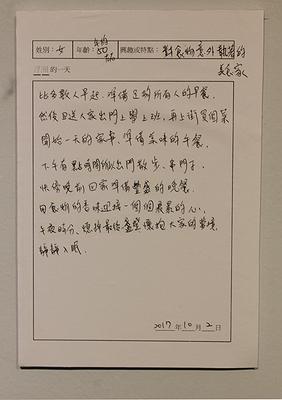 姓別：女 年齡：年約50 興趣或特點：對食物意外執著的
美食家
的一天
比多數人早起，準備足夠所有人的早餐，
然後目送人家出門上學上班，再上街買菜
開始一天的家事，準備美味的午餐，
下午有點時間就出門散步、串門子，
快傍晚前回家準備豐盛的晚餐，
用食物的香味迎接一個個晨晨的心，
午夜時分，總擁抱大家的夢境，
靜靜入眠。
2017 年 10 月 2 日